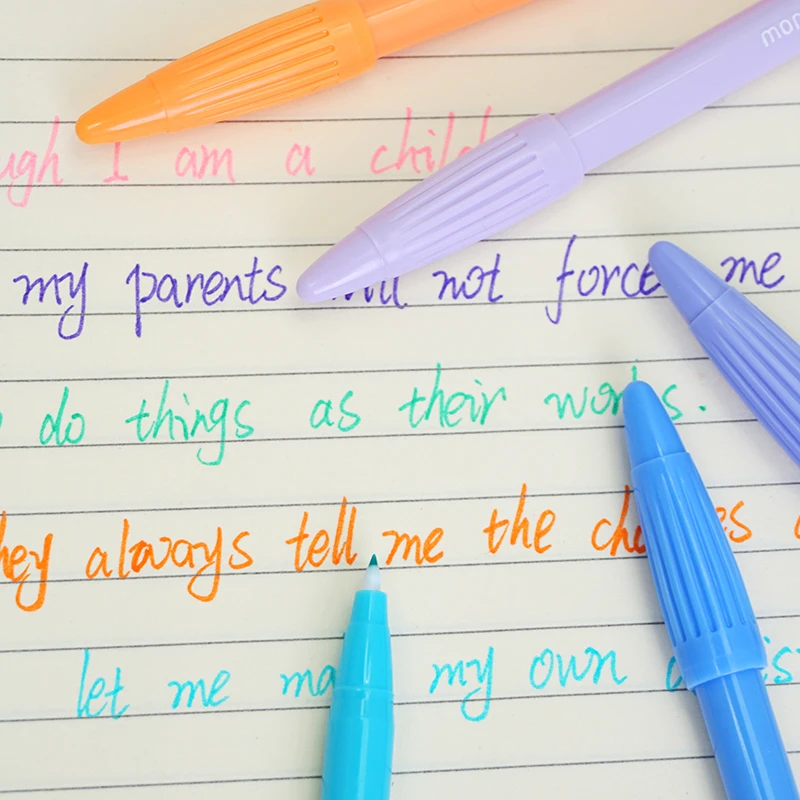 mon
ugh I am a child
my parents will not force me
do things as their works.
hey always tell me the ch es
let me ma my own